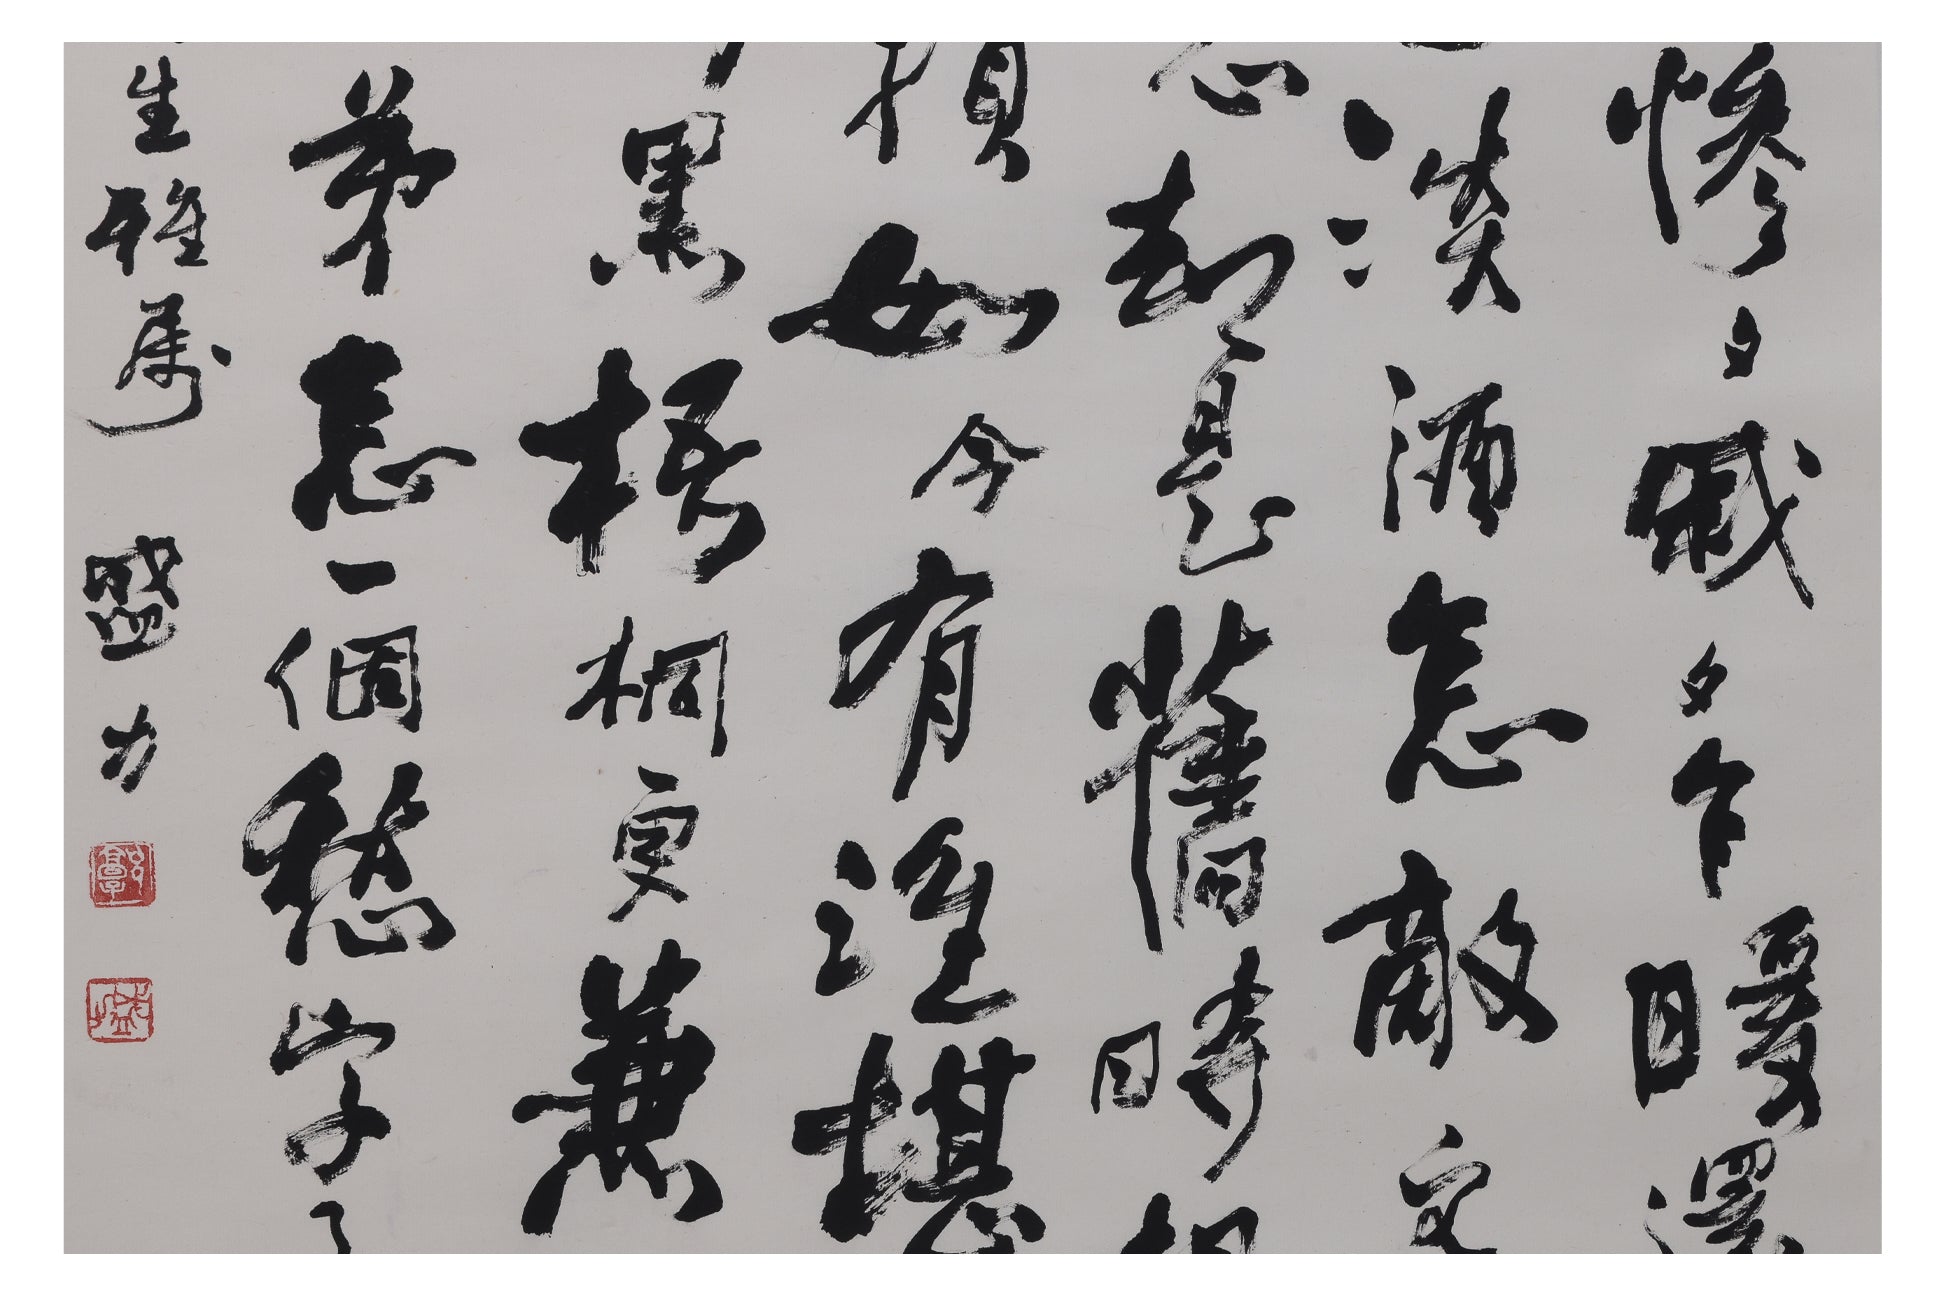 慘々戚々乍暖還
淡酒怎敵它
心却是舊時相
損如今有誰堪
黑梧桐更兼
第怎一個愁字了
生雅属 盛力